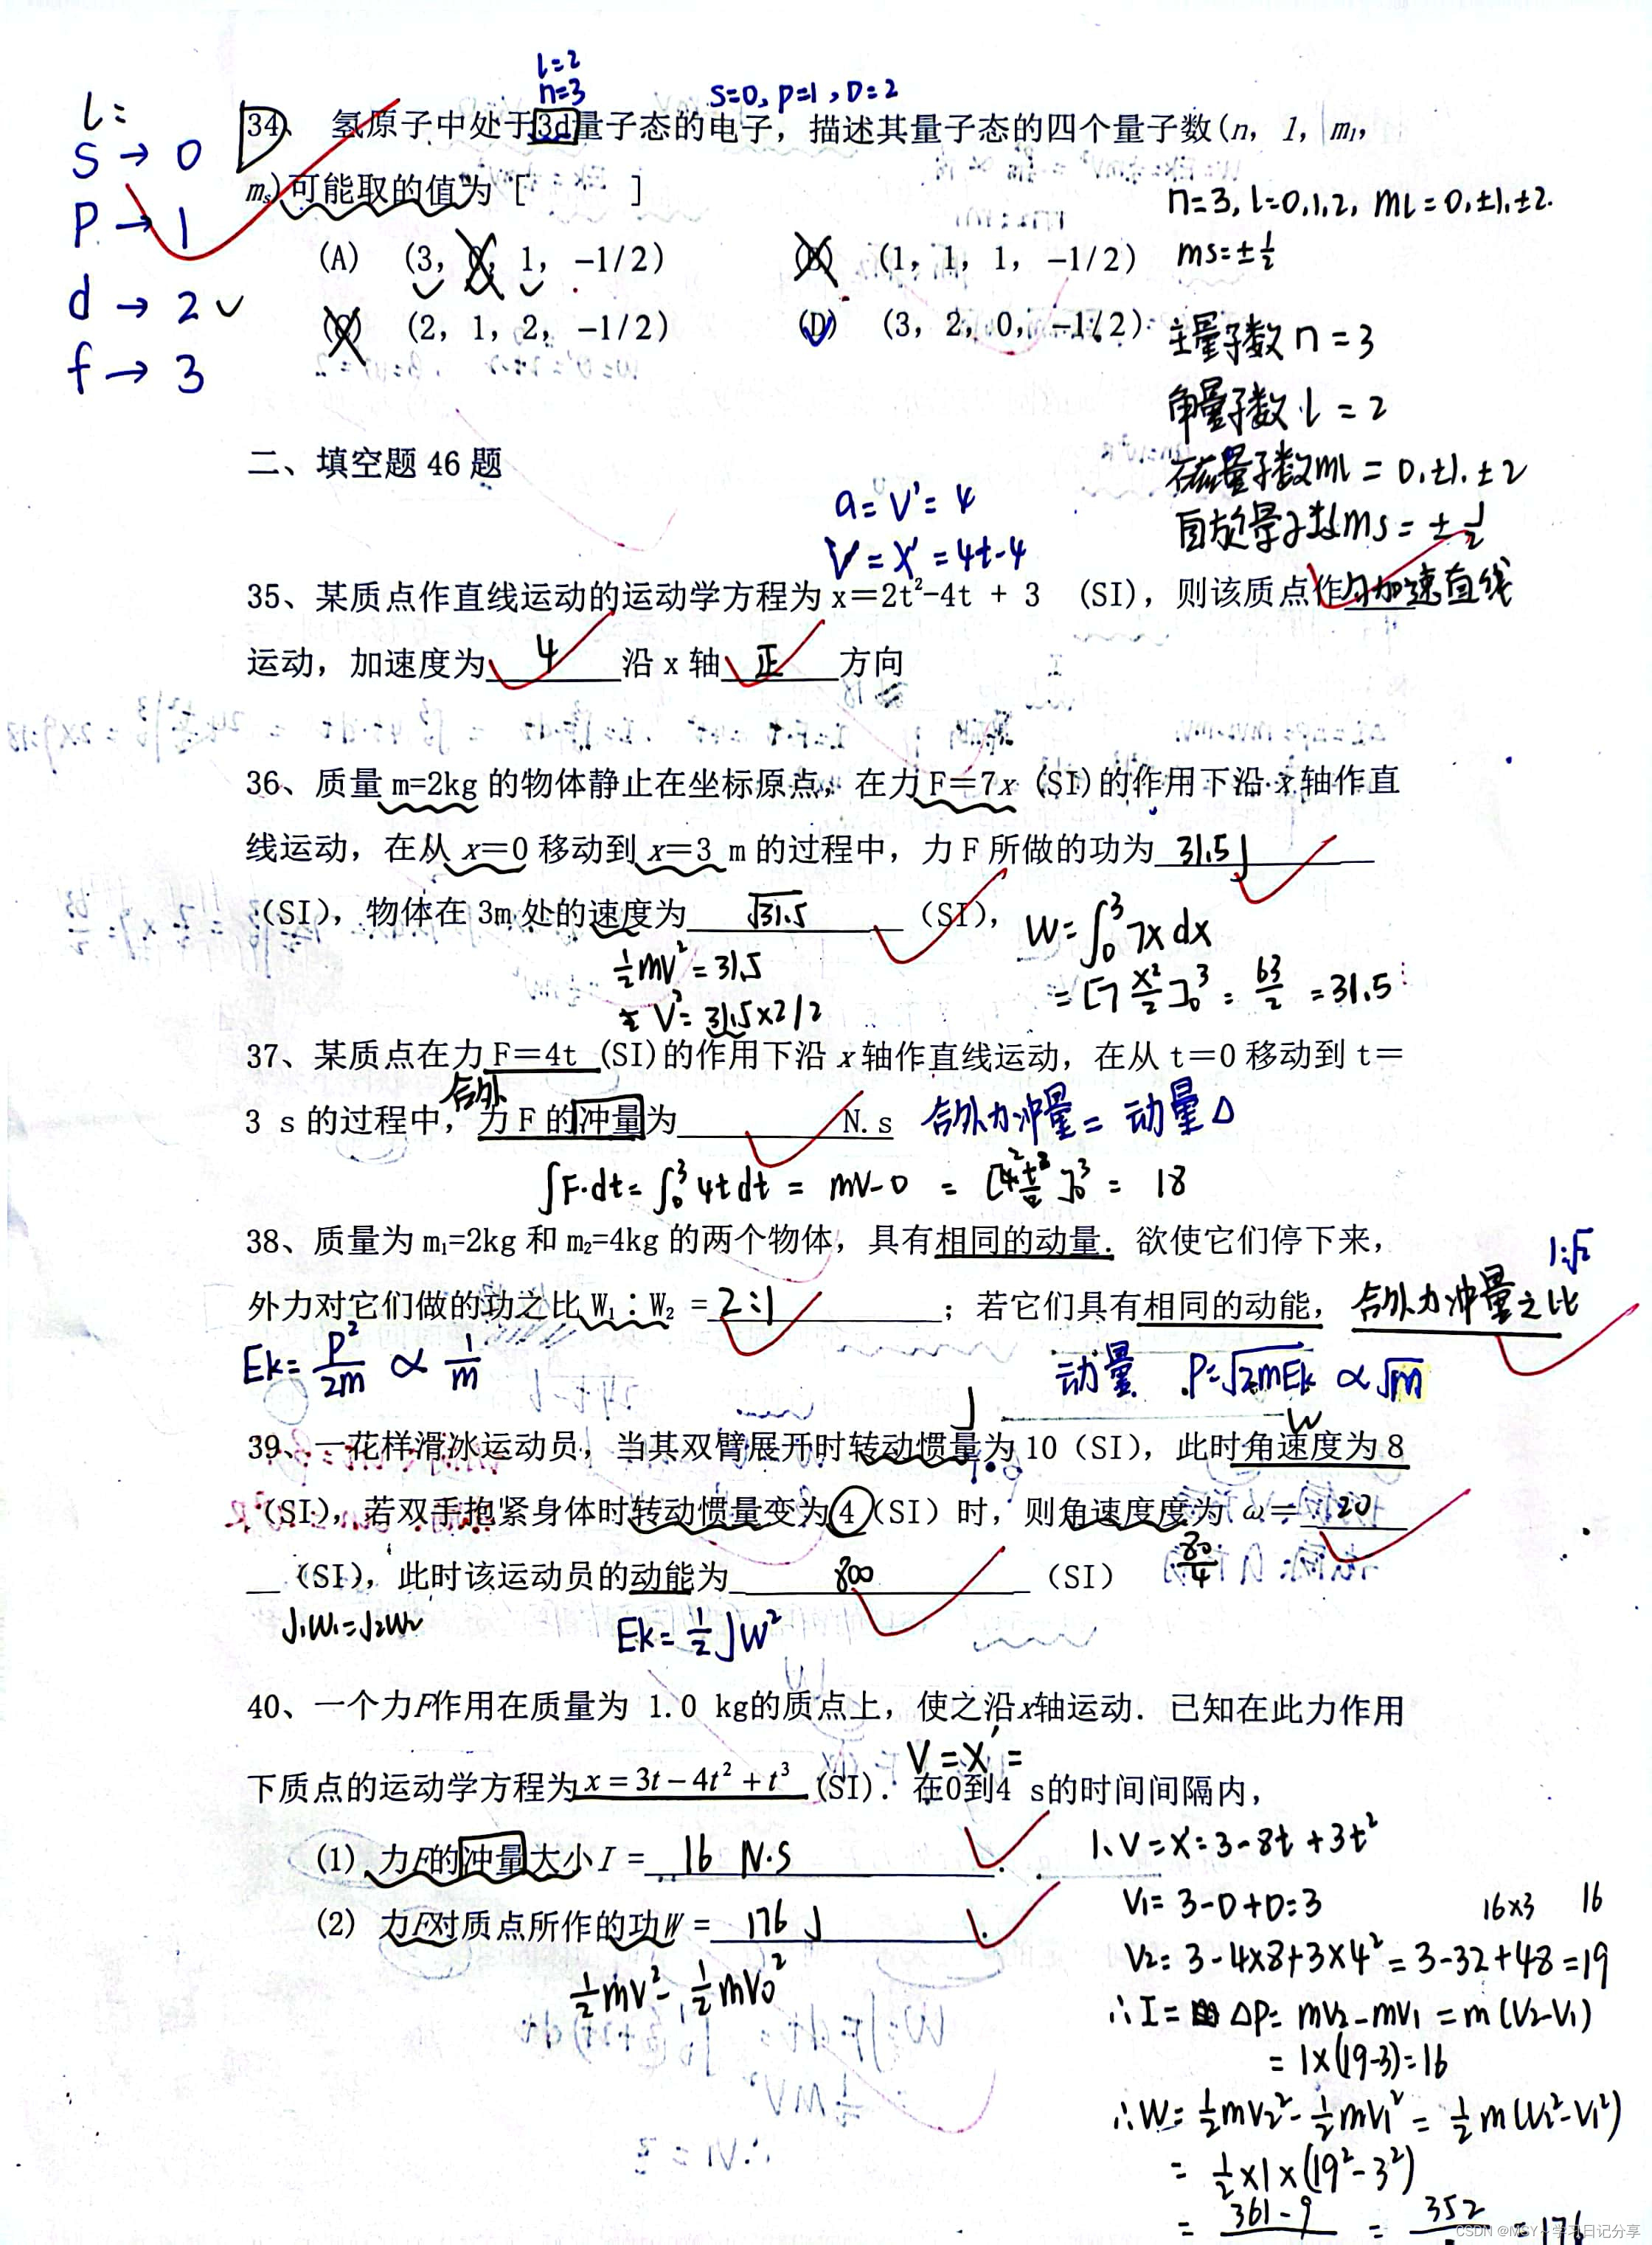 l=2
n=3
S=0, P=1, D=2
l:
S → 0
P → 1
d → 2
f → 3
34、 氢原子中处于3d量子态的电子，描述其量子态的四个量子数(n, l, ml,
ms)可能取的值为 [ ]
n=3, l=0,1,2, ml=0,±1,±2.
ms=±1/2
(A) (3, 0, 1, -1/2) (B) (1, 1, 1, -1/2)
(C) (2, 1, 2, -1/2) (D) (3, 2, 0, -1/2)
主量子数 n=3
角量子数 l=2
磁量子数ml=0,±1,±2
自旋量子数ms=±1/2
二、填空题 46 题
a=V'=4
V=X'=4t-4
35、某质点作直线运动的运动学方程为 x＝2t²-4t + 3 (SI)，则该质点作匀加速直线
运动，加速度为 4 沿 x 轴 正 方向
36、质量 m=2kg 的物体静止在坐标原点，在力 F＝7x (SI)的作用下沿 x 轴作直
线运动，在从 x＝0 移动到 x＝3 m 的过程中，力 F 所做的功为 31.5J
(SI)，物体在 3m 处的速度为 √31.5 (SI)，
W=∫₀³7xdx
=[7 x²/2]₀³=63/2=31.5
1/2mV²=31.5
V²=31.5×2/2
37、某质点在力 F＝4t (SI)的作用下沿 x 轴作直线运动，在从 t＝0 移动到 t＝
合外
3 s 的过程中，力 F 的冲量为 N.s 合外力冲量=动量Δ
∫F·dt=∫₀³4tdt=mV-0=[4t²/2]₀³=18
38、质量为 m₁=2kg 和 m₂=4kg 的两个物体，具有相同的动量．欲使它们停下来，
1:√2
外力对它们做的功之比 W₁：W₂ = 2:1 ；若它们具有相同的动能，合外力冲量之比
Ek=P²/2m ∝ 1/m
动量 P=√2mEk ∝√m
J
W
39、一花样滑冰运动员，当其双臂展开时转动惯量为 10 (SI)，此时角速度为 8
(SI)，若双手抱紧身体时转动惯量变为 4 (SI) 时，则角速度度为 ω＝ 20
80/4
(SI)，此时该运动员的动能为 800 (SI)
J₁W₁=J₂W₂
Ek=1/2JW²
40、一个力F作用在质量为 1.0 kg的质点上，使之沿x轴运动．已知在此力作用
V=X'=
下质点的运动学方程为 x=3t-4t²+t³ (SI)．在0到4 s的时间间隔内，
(1) 力F的冲量大小I = 16 N·S .
(2) 力F对质点所作的功W = 176 J .
1/2mV²-1/2mV₀²
1、V=X'=3-8t+3t²
V₁=3-0+0=3
16×3 16
V₂=3-4×8+3×4²=3-32+48=19
∴I=ΔP=mV₂-mV₁=m(V₂-V₁)
=1×(19-3)=16
∴W=1/2mV₂²-1/2mV₁²=1/2m(V₂²-V₁²)
=1/2×1×(19²-3²)
=361-9 = 352 =176
CSDN @MSY~学习日记分享